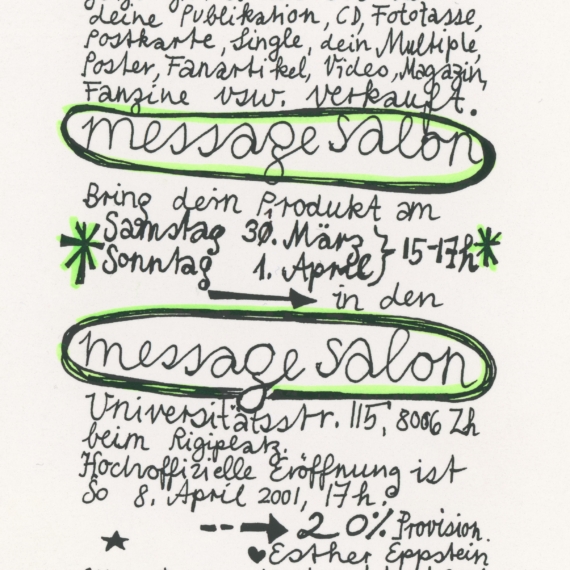 deine Publikation, CD, Fototasse,
Postkarte, Single, dein Multiple,
Poster, Fanartikel, Video, Magazin,
Fanzine usw. verkauft.
message salon
Bring dein Produkt am
Samstag 30. März } 15-17h
Sonntag 1. April }
in den
message salon
Universitätsstr. 115, 8006 Zh
beim Rigiplatz.
Hochoffizielle Eröffnung ist
So 8. April 2001, 17h.
20% Provision.
Esther Eppstein